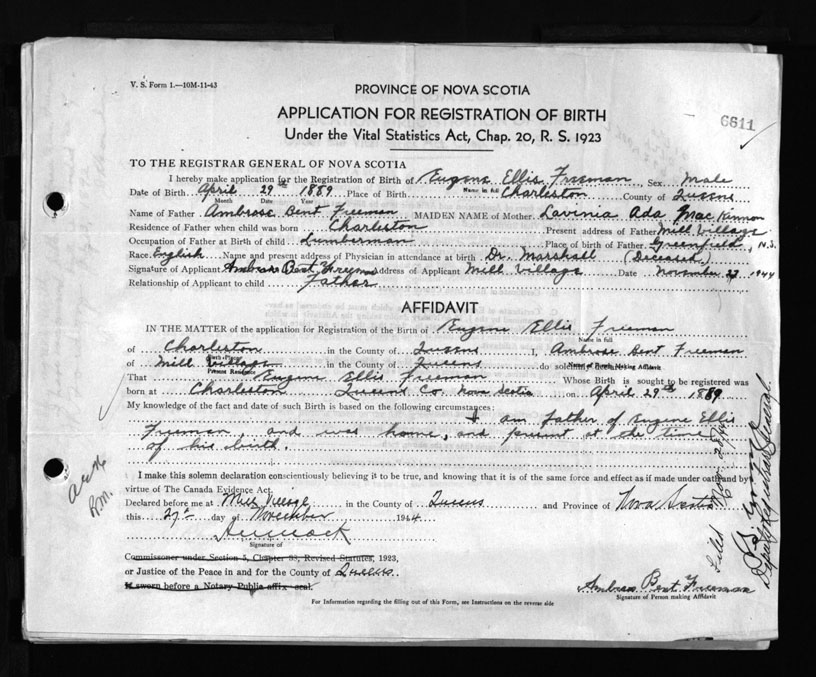 V. S. Form 1.—10M-11-43
PROVINCE OF NOVA SCOTIA
APPLICATION FOR REGISTRATION OF BIRTH
6611
Under the Vital Statistics Act, Chap. 20, R. S. 1923
TO THE REGISTRAR GENERAL OF NOVA SCOTIA
I hereby make application for the Registration of Birth of Eugene Ellis Freeman Sex Male
Name in full
Date of Birth April 29th 1889 Place of Birth Charleston County of Queens
Month Date Year
Name of Father Ambrose Bent Freeman MAIDEN NAME of Mother Lavinia Ada MacKinnon
Residence of Father when child was born Charleston Present address of Father Mill Village
Occupation of Father at Birth of child Lumberman Place of birth of Father Greenfield, N.S.
Race English Name and present address of Physician in attendance at birth Dr. Marshall (Deceased)
Signature of Applicant Ambros Bent Freeman Address of Applicant Mill Village Date November 27 1944
Relationship of Applicant to child Father
AFFIDAVIT
IN THE MATTER of the application for Registration of the Birth of Eugene Ellis Freeman
Name in full
of Charleston in the County of Queens I, Ambrose Bent Freeman
Birth Place
Name of Person Making Affidavit
of Mill Village in the County of Queens do solemnly
Present Residence
That Eugene Ellis Freeman Whose Birth is sought to be registered was
born at Charleston Queens Co. Nova Scotia on April 29th 1889
My knowledge of the fact and date of such Birth is based on the following circumstances:
I am father of Eugene Ellis
Freeman, and was home, and present at the time
of his birth.
I make this solemn declaration conscientiously believing it to be true, and knowing that it is of the same force and effect as if made under oath and by
virtue of The Canada Evidence Act.
Declared before me at Mill Village in the County of Queens and Province of Nova Scotia
this 27th day of November 1944
Signature of
Commissioner under Section 5, Chapter 88, Revised Statutes, 1923,
or Justice of the Peace in and for the County of Queens.
If sworn before a Notary Public affix seal.
Ambros Bent Freeman
Signature of Person making Affidavit
For Information regarding the filling out of this Form, see Instructions on the reverse side
Filed Nov 28/44
Deputy Registrar General